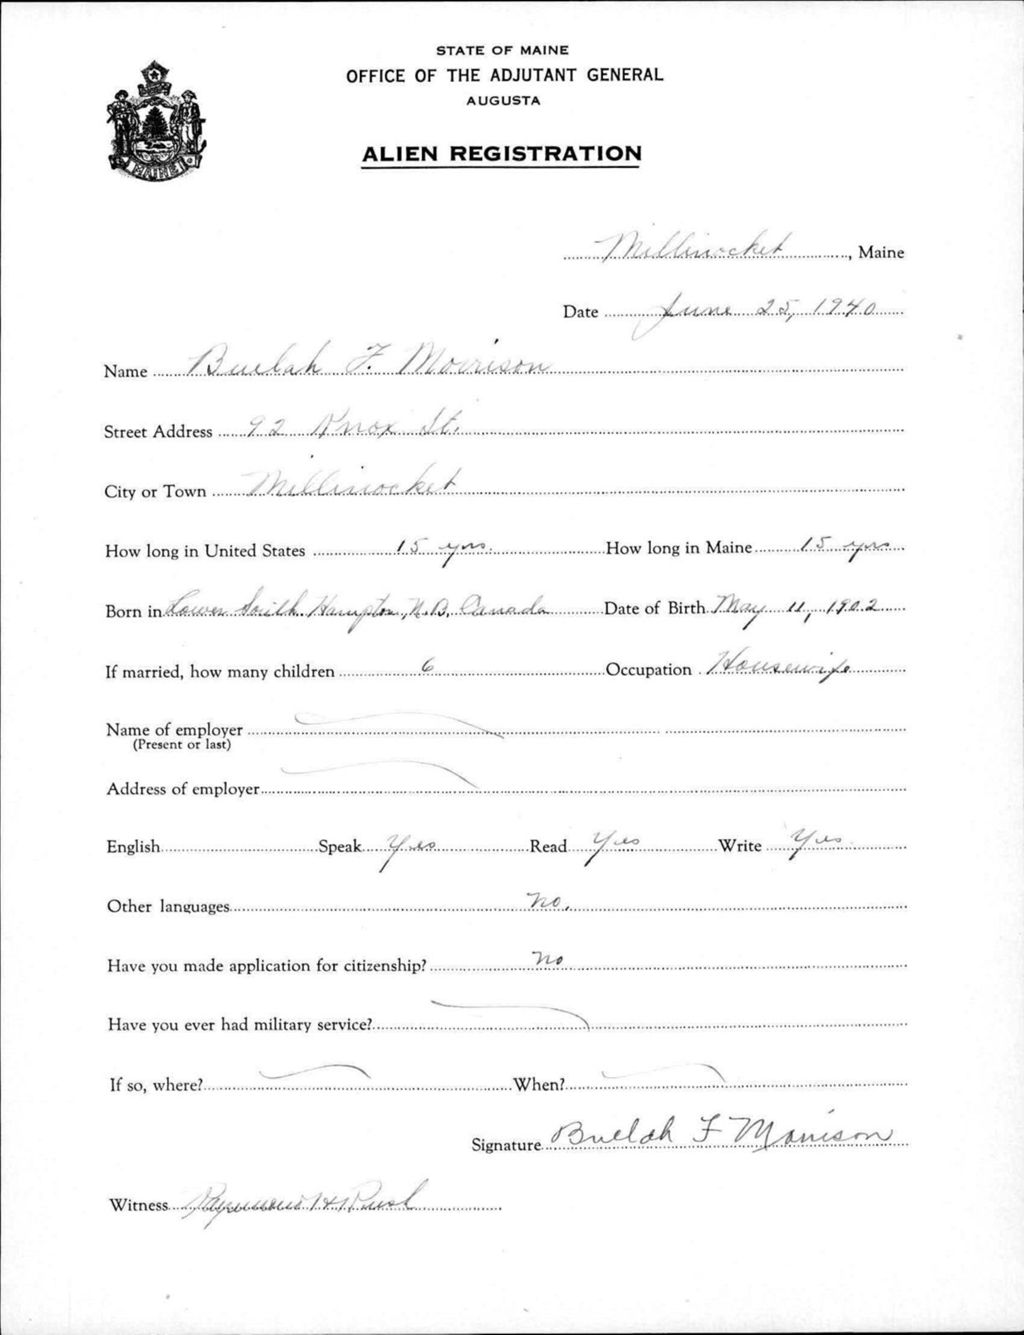 STATE OF MAINE
OFFICE OF THE ADJUTANT GENERAL
AUGUSTA
ALIEN REGISTRATION
MAINE
Millinocket, Maine
Date June 25, 1940
Name Buelah F. Morrison
Street Address 92 Knox St.
City or Town Millinocket
How long in United States 15 yrs. How long in Maine 15 yrs
Born in Lower South Hampton, N.B. Canada Date of Birth May 11, 1902
If married, how many children 6 Occupation Housewife
Name of employer
(Present or last)
Address of employer
English Speak Yes Read Yes Write Yes
Other languages No.
Have you made application for citizenship? No
Have you ever had military service?
If so, where? When?
Signature Buelah F Morrison
Witness Raymond H Rush